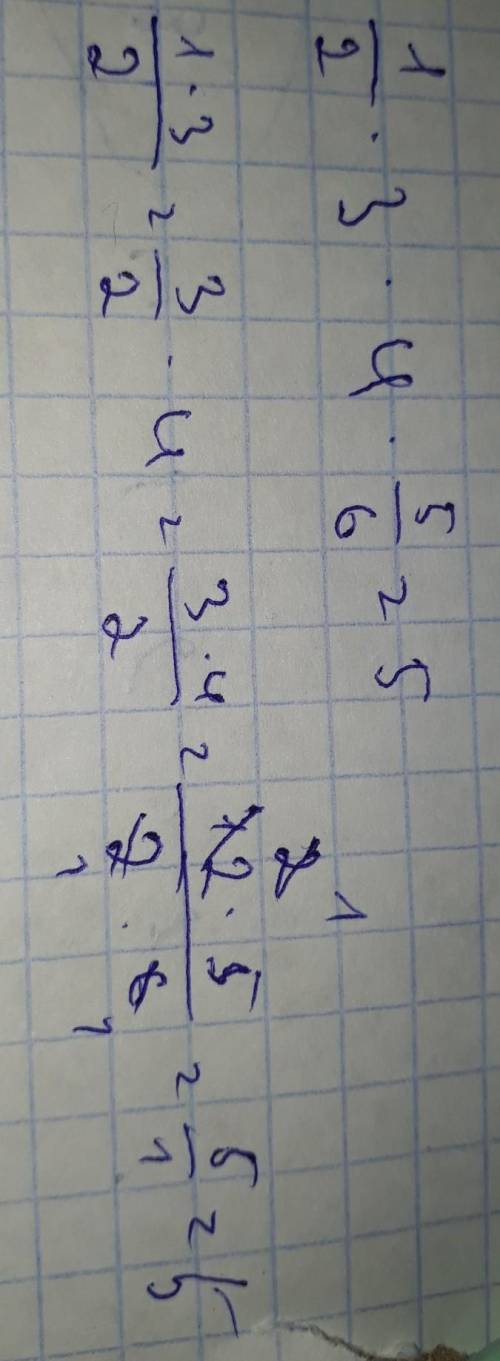 1/2 · 3 · 4 · 5/6 = 5
1 · 3/2 = 3/2 · 4 = 3 · 4/2 = 12 · 5/2 · 6 = 5/1 = 5